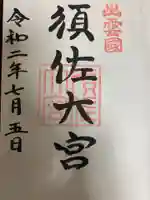 出雲國
須佐大宮
令和二年七月五日